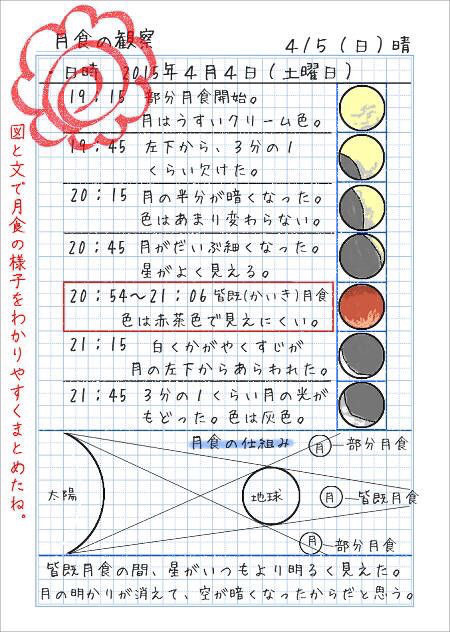 月食の観察
4/5(日)晴
・日時 2015年4月4日(土曜日)
19:15 部分月食開始。
月はうすいクリーム色。
19:45 左下から、3分の1
くらい欠けた。
20:15 月の半分が暗くなった。
色はあまり変わらない。
20:45 月がだいぶ細くなった。
星がよく見える。
20:54〜21:06皆既(かいき)月食
色は赤茶色で見えにくい。
21:15 白くかがやくすじが
月の左下からあらわれた。
21:45 3分の1くらい月の光が
もどった。色は灰色。
図と文で月食の様子をわかりやすくまとめたね。
月食の仕組み
月 部分月食
太陽
地球
月 皆既月食
月 部分月食
皆既月食の間、星がいつもより明るく見えた。
月の明かりが消えて、空が暗くなったからだと思う。